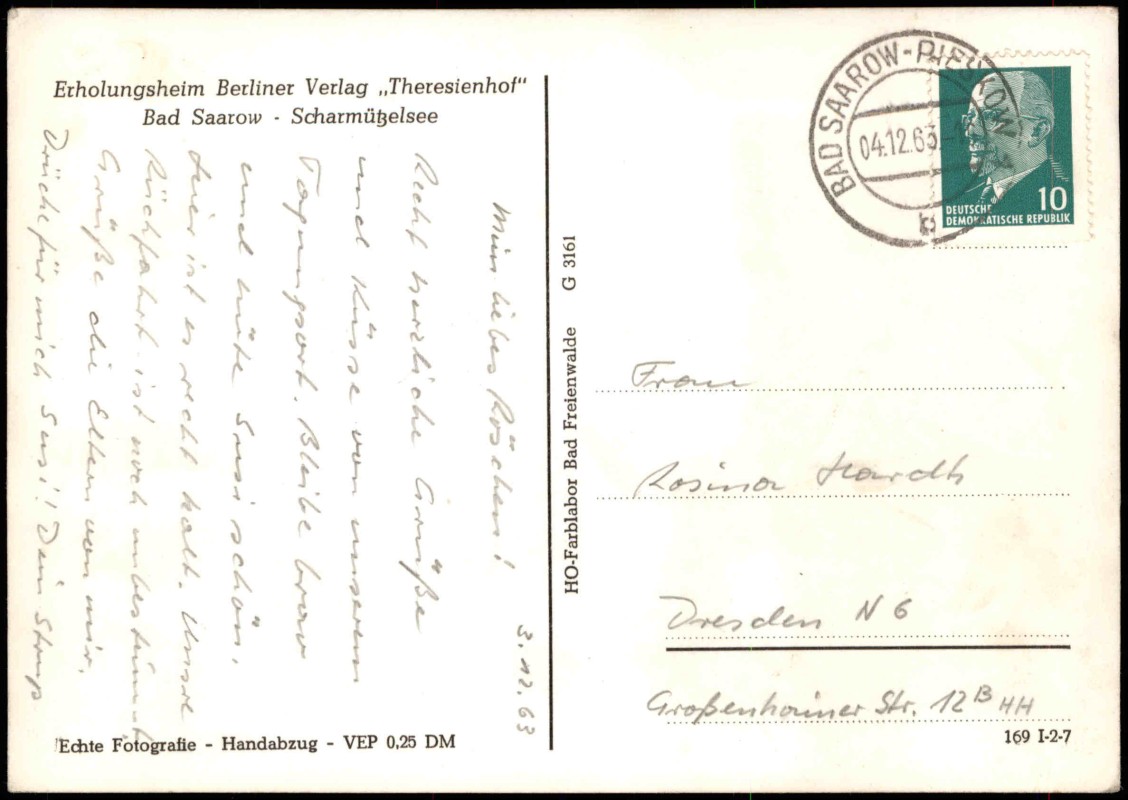 Erholungsheim Berliner Verlag „Theresienhof"
Bad Saarow - Scharmützelsee
3. 12. 63
Mein liebes Röschen!
Recht herzliche Grüße
und Küsse von unserem
Tagungsort. Bleibe brav
und hüte Susi schön.
Hier ist es recht kalt. Unsre
Rückfahrt ist noch unbestimmt
Grüße die Eltern von mir.
Drücke für mich Susi! Dein
Echte Fotografie - Handabzug - VEP 0,25 DM
HO-Farblabor Bad Freienwalde G 3161
BAD SAAROW-PIESKOW
04.12.63
b
10
DEUTSCHE
DEMOKRATISCHE REPUBLIK
Frau
Rosina Hardt
Dresden N 6
Großenhainer Str. 12B HH
169 I-2-7